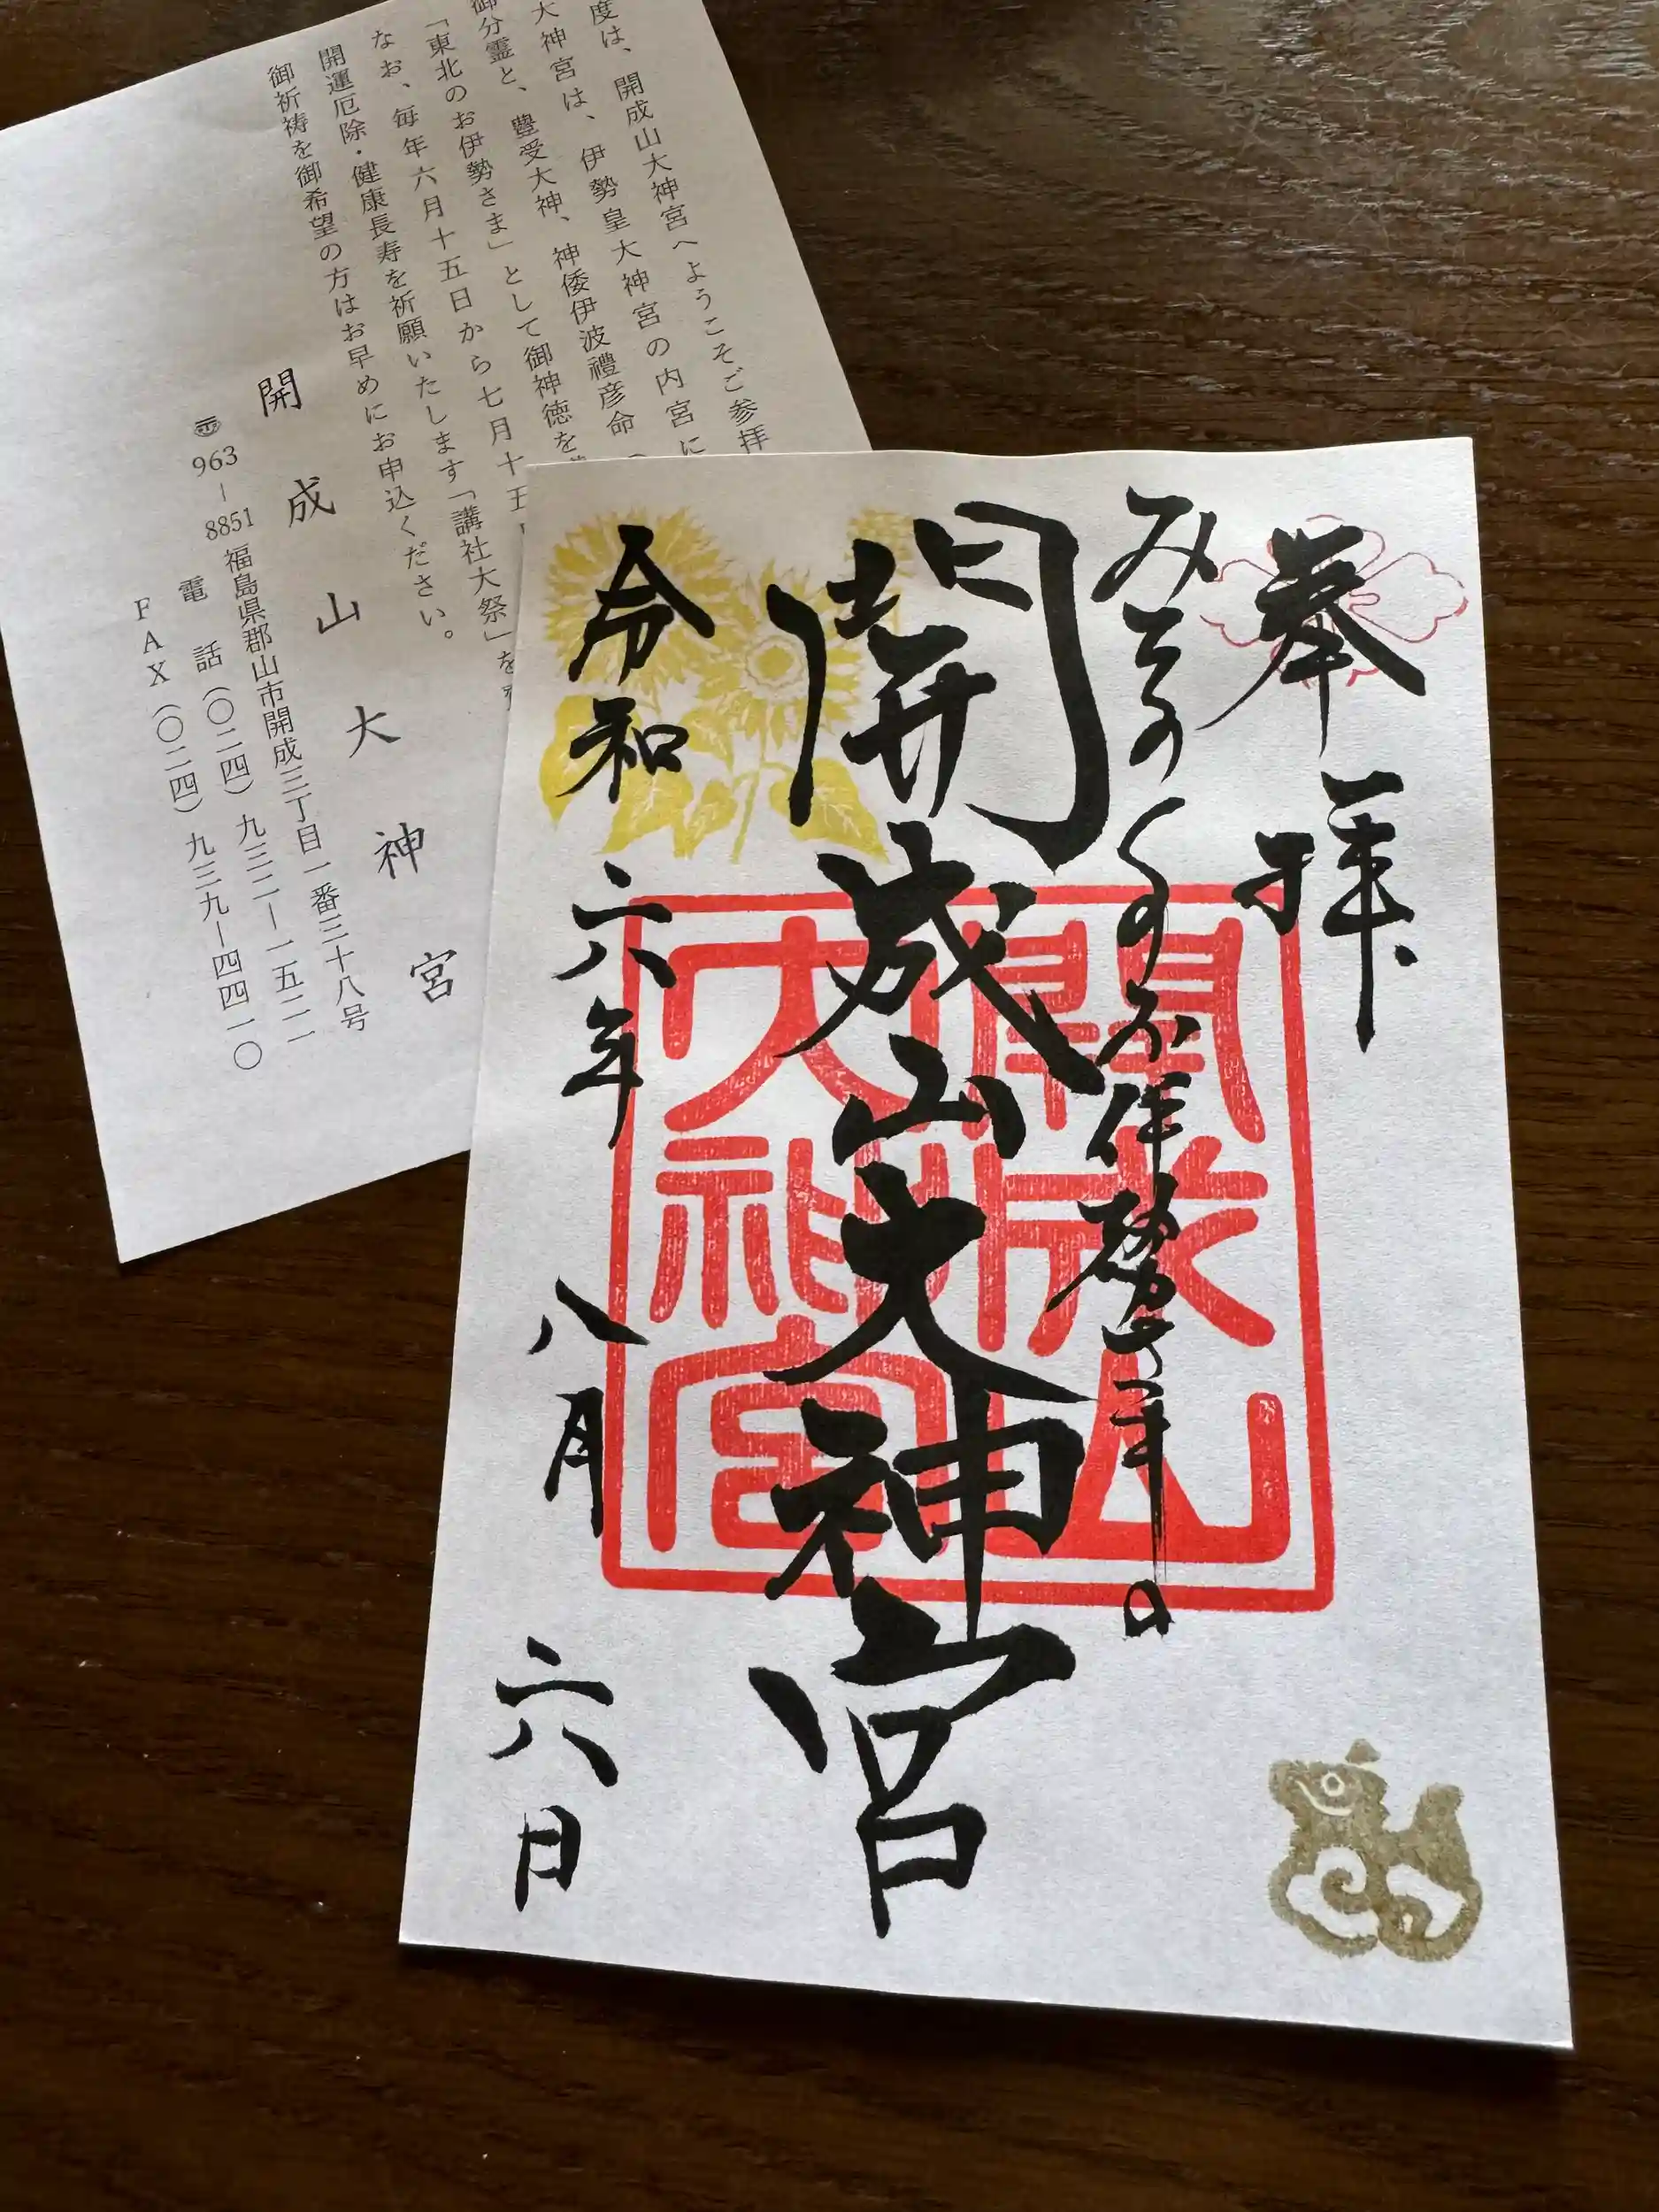 奉拝
みちのくのお伊勢さまの
開成山大神宮
令和六年八月六日
開成山大神宮
度は、開成山大神宮へようこそご参拝
大神宮は、伊勢皇大神宮の内宮に
御分霊と、豊受大神、神倭伊波禮彦命
「東北のお伊勢さま」として御神徳を
なお、毎年六月十五日から七月十五
開運厄除・健康長寿を祈願いたします「講社大祭」を
御祈祷を御希望の方はお早めにお申込ください。
開成山大神宮
〒963-8851福島県郡山市開成三丁目一番三十八号
電話(〇二四)九三二―一五二一
FAX(〇二四)九三九―四四一〇